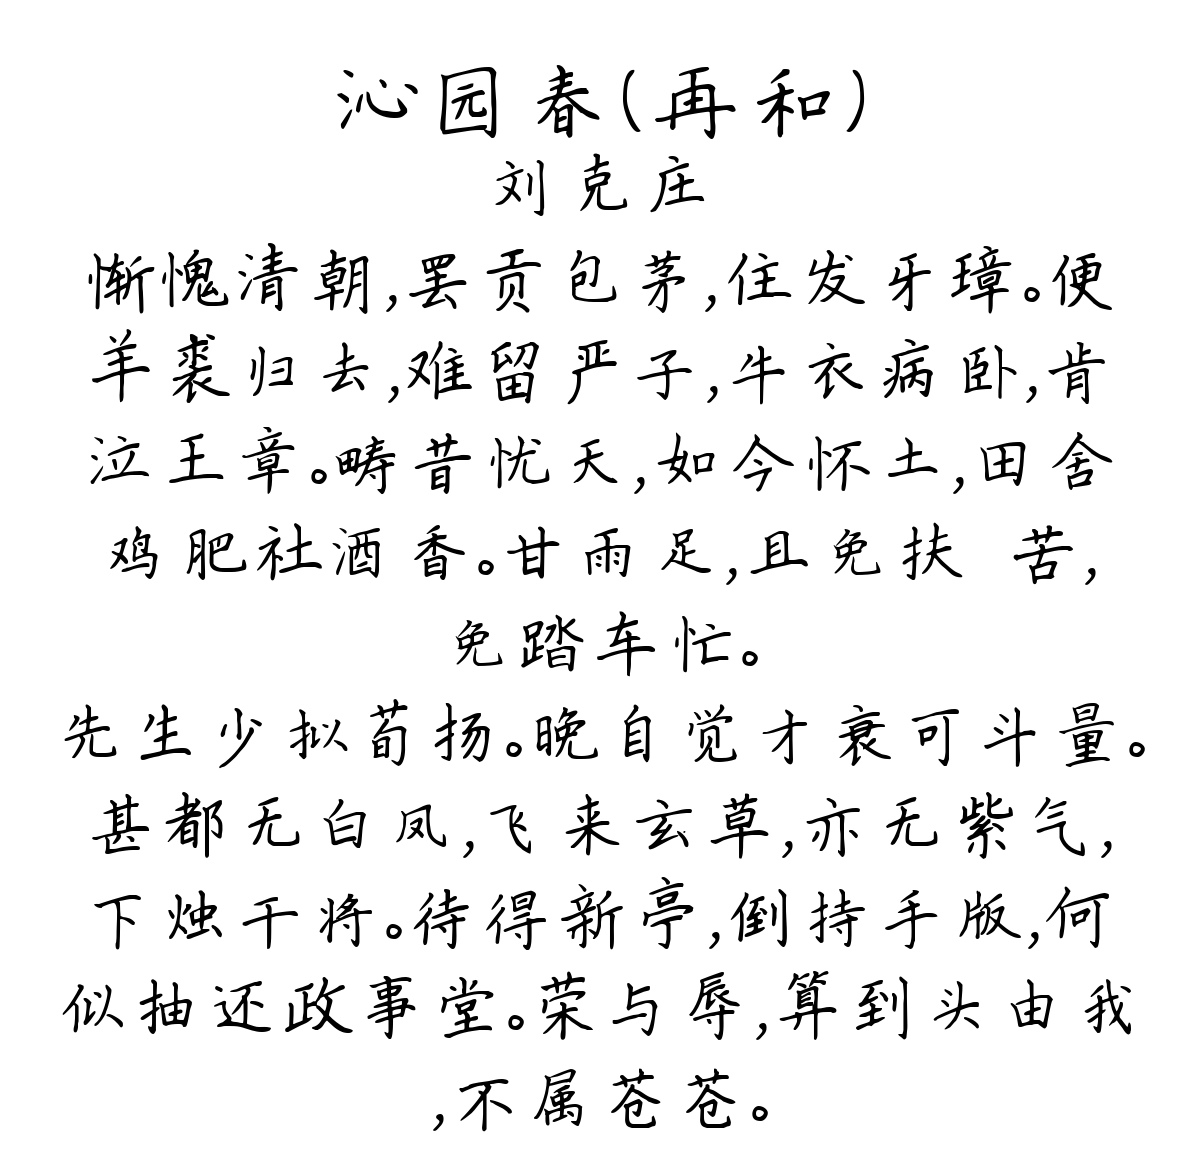 沁园春(再和)
刘克庄
惭愧清朝,罢贡包茅,住发牙璋。便
羊裘归去,难留严子,牛衣病卧,肯
泣王章。畴昔忧天,如今怀土,田舍
鸡肥社酒香。甘雨足,且免扶 苦,
免踏车忙。
先生少拟荀扬。晚自觉才衰可斗量。
甚都无白凤,飞来玄草,亦无紫气,
下烛干将。待得新亭,倒持手版,何
似抽还政事堂。荣与辱,算到头由我
,不属苍苍。